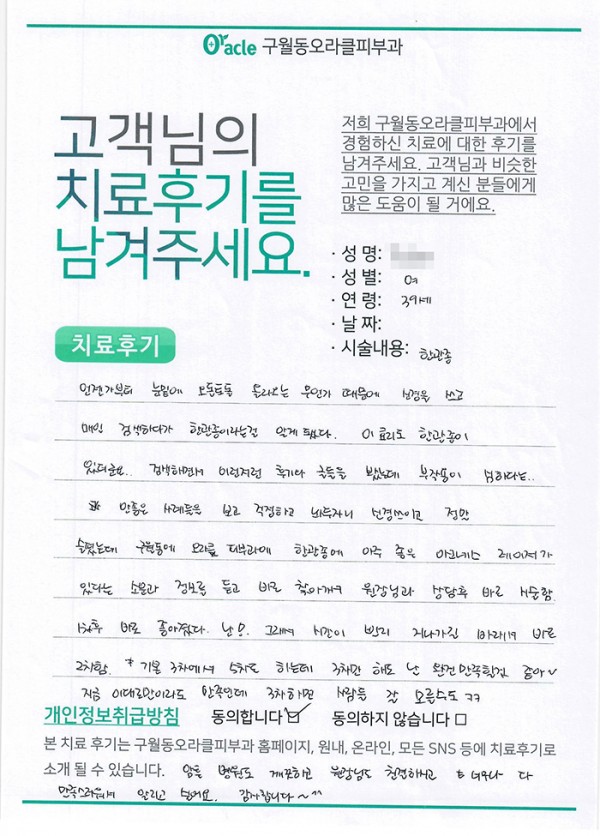 Oracle 구월동오라클피부과
고객님의
치료후기를
남겨주세요.
저희 구월동오라클피부과에서
경험하신 치료에 대한 후기를
남겨주세요. 고객님과 비슷한
고민을 가지고 계신 분들에게
많은 도움이 될 거에요.
· 성 명:
· 성 별: 여
· 연 령: 39세
· 날 짜:
· 시술내용: 한관종
치료후기
언젠가부터 눈밑에 오돌토돌 올라오는 무언가 때문에 신경을 쓰고
매일 검색하다가 한관종이라는걸 알게 됐다. 이효리도 한관종이
있더군요.. 검색하면서 이런저런 후기나 글들을 봤는데 부작용이 심하다는..
안좋은 사례들을 보고 걱정하고 놔두자니 신경쓰이고 정말
슬펐는데 구월동에 오라클 피부과에 한관종에 아주 좋은 아그네스 레이저가
있다는 소문과 정보를 듣고 바로 찾아가서 원장님과 상담후 바로 시술함.
1차후 바로 좋아졌다. 난 그래서 시간이 빨리 지나가길 바래서 바로
2차함. * 기본 3차에서 5차도 하는데 3차만 해도 난 완전만족할걸 좋아
지금 이대로만이라도 만족인데 3차하면 사람들 감 모를수도 ㅋㅋ
개인정보취급방침 동의합니다 ☑ 동의하지 않습니다 □
본 치료 후기는 구월동오라클피부과 홈페이지, 원내, 온라인, 모든 SNS 등에 치료후기로
소개 될 수 있습니다. 암튼 병원도 깨끗하고 원장님도 친절하시고 너무나 다
만족스러워서 알리고 싶어요. 감사합니다~^^